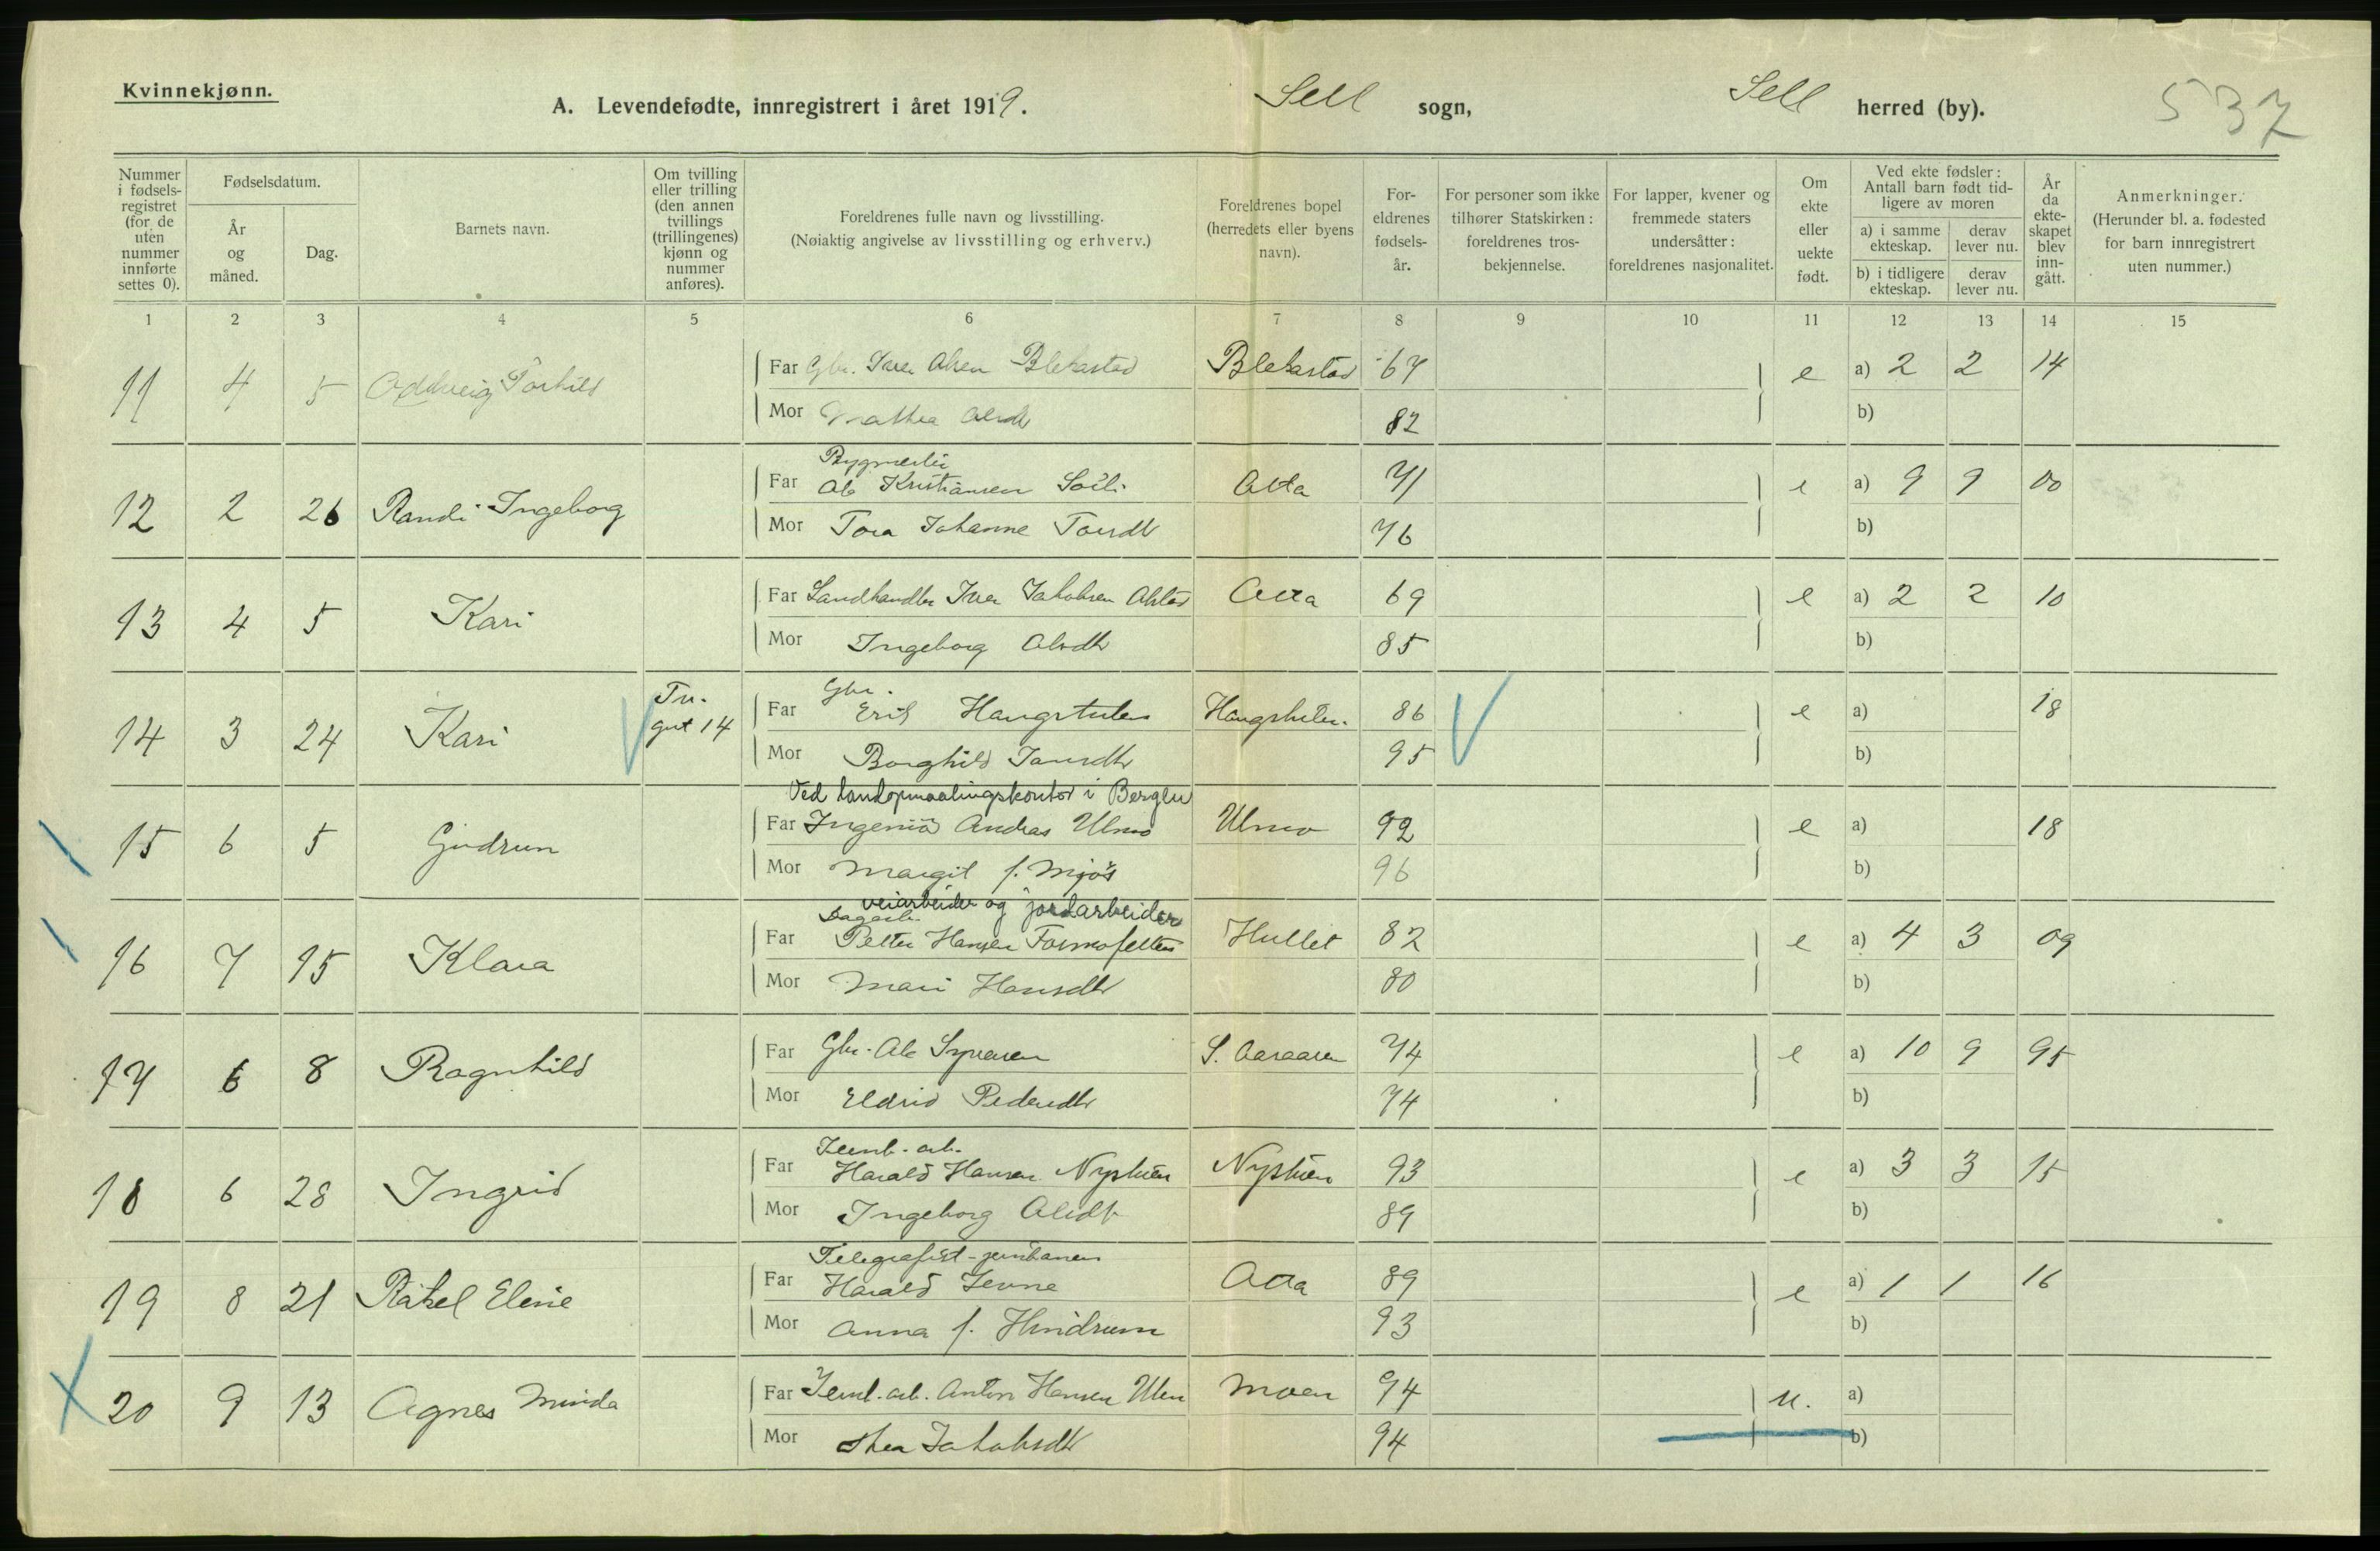 Kvinnekjønn.
A. Levendefødte, innregistrert i året 1919. Sell sogn, Sell herred (by). 537
Nummer i fødselsregistret (for de uten nummer innførte settes 0).
Fødselsdatum.
År og måned.
Dag.
Barnets navn.
Om tvilling eller trilling (den annen tvillings (trillingenes) kjønn og nummer anføres).
Foreldrenes fulle navn og livsstilling.
(Nøiaktig angivelse av livsstilling og erhverv.)
Foreldrenes bopel (herredets eller byens navn).
Foreldrenes fødselsår.
For personer som ikke tilhører Statskirken: foreldrenes trosbekjennelse.
For lapper, kvener og fremmede staters undersåtter: foreldrenes nasjonalitet.
Om ekte eller uekte født.
Ved ekte fødsler: Antall barn født tidligere av moren
a) i samme ekteskap.
derav lever nu.
b) i tidligere ekteskap.
derav lever nu.
År da ekteskapet blev inngått.
Anmerkninger.
(Herunder bl. a. fødested for barn innregistrert uten nummer.)
1 2 3 4 5 6 7 8 9 10 11 12 13 14 15
11 4 5 Oddveig Torhild Far Gbr. Iver Olsen Blekastad Blekastad 67 e a) 2 2 14
Mor Mathea Olsdtr 82 b)
Bygmester
12 2 26 Randi Ingeborg Far Ole Kristiansen Otta 71 e a) 9 9 00
Mor Tora Johanne 76 b)
13 4 5 Kari Far Landhandler Iver Jakobsen Otta 69 e a) 2 2 10
Mor Ingeborg Olsdtr 85 b)
Gbr.
14 3 24 Kari Tv. gut 14 Far Erik Haugstulen Haugstulen 86 e a) 18
Mor Borghild 95 b)
Ved landopmaalingskontor i Bergen
15 6 5 Gudrun Far Ingeniør Andreas Ulmo Ulmo 92 e a) 18
Mor Margit f. Mjøs 96 b)
veiarbeider og jordarbeider
16 7 15 Klara Far Petter Hansen Hullet 82 e a) 4 3 09
Mor Mari Hansdtr 80 b)
17 6 8 Ragnhild Far Gbr. Ole Syversen S. Aaraasen 74 e a) 10 9 95
Mor Eldrid Pedersdtr 74 b)
Jernb. arb.
18 6 28 Ingrid Far Harald Hansen Nystuen Nystuen 93 e a) 3 3 15
Mor Ingeborg Olsdtr 89 b)
Telegrafist - jernbanen
19 8 21 Rakel Elene Far Harald Jevne Otta 89 e a) 1 1 16
Mor Anna f. Hindrum 93 b)
20 9 13 Agnes Minda Far Jernb. arb. Anton Hansen Moen 94 u. a)
Mor Thea Jakobsdtr 94 b)